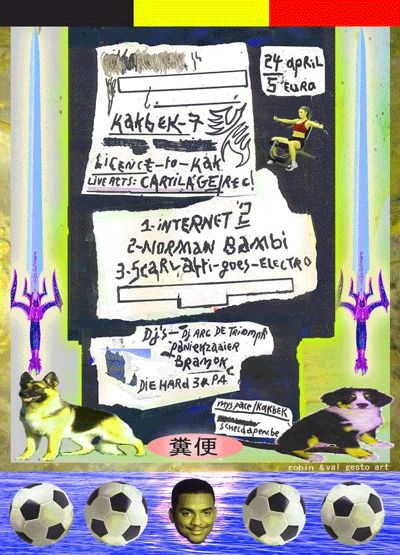 24 april
5 EURO
KAKBEK-7
LiCENCE-to-KAK
LiVE ACTS: CARTiLAGE/REC
1-iNTERNET 2
2-NORMAN BAMBi
3-SCARLAtti-goes-ELECTRO
Dj's- Dj ARC DE TRiomph
PANiEKZAAiER
BRAMOK
DiE HARD 3 & PA
myspace/KAKBEK
SCHELDAPEN.be
糞便
robin & val gesto art